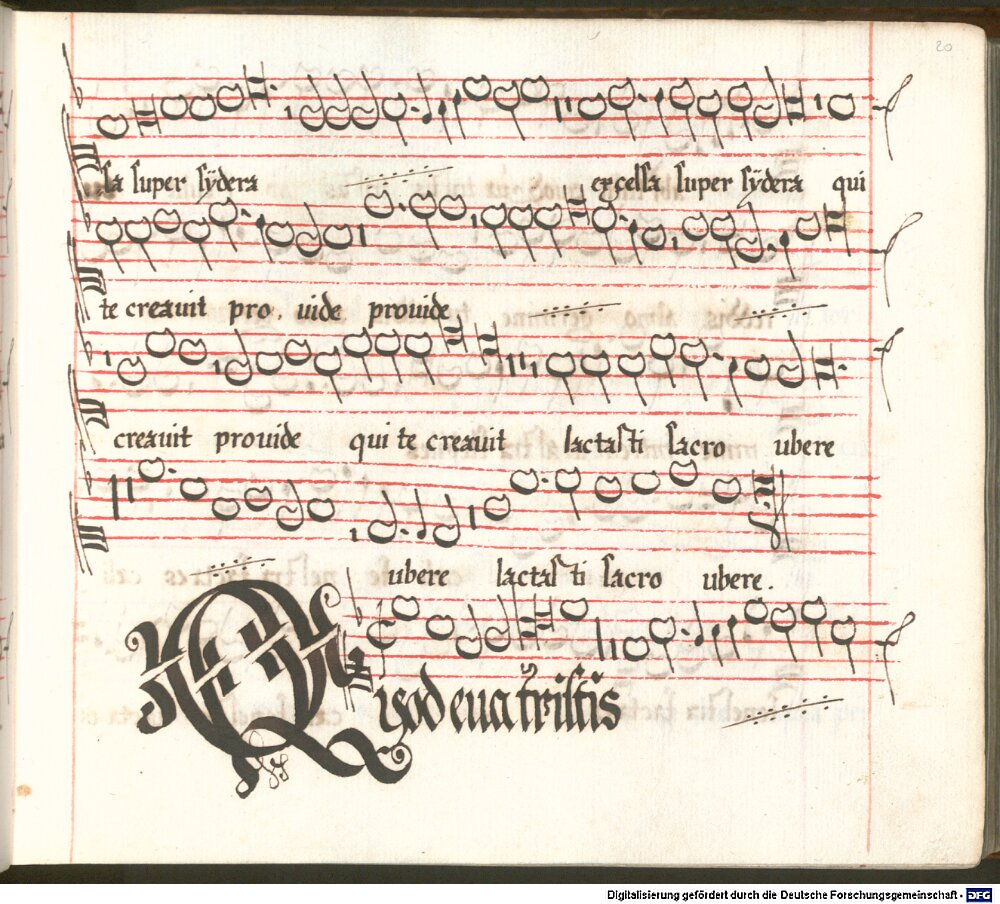 20
sa super sÿdera excelsa super sÿdera qui
te creauit pro. uide prouide
creauit prouide qui te creauit lactasti sacro ubere
ubere lactasti sacro ubere.
Quod eua tristis
Digitalisierung gefördert durch die Deutsche Forschungsgemeinschaft - DFG